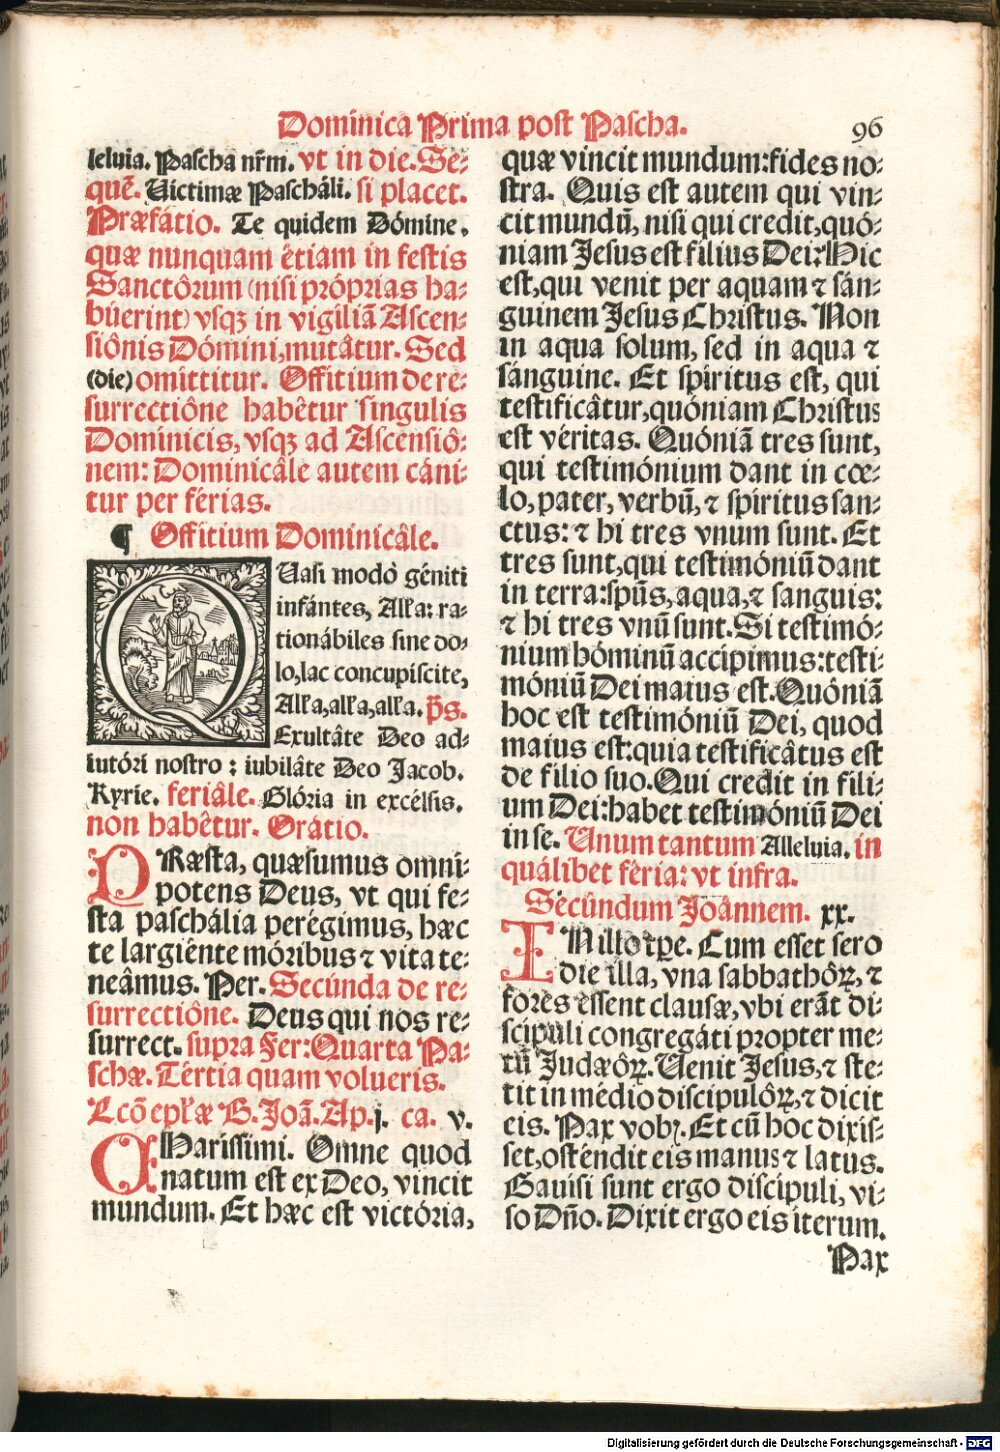 Dominica Prima post Pascha. 96
leluia. Pascha nr̃m. vt in die. Se⸗
quẽ. Victimæ Pascháli. si placet.
Præfátio. Te quidem Dómine,
quæ nunquam étiam in festis
Sanctôrum (nisi próprias ha⸗
búerint) vsqꝫ in vigiliã Ascen⸗
siônis Dómini, mutâtur. Sed
(die) omittitur. Offitium de re⸗
surrectiône habêtur singulis
Dominicis, vsqꝫ ad Ascensiô⸗
nem: Dominicâle autem cáni⸗
tur per férias.
¶ Offitium Dominicâle.
QVasi modò géniti
infántes, All'a: ra⸗
tionábiles sine do⸗
lo, lac concupiscite,
All'a, all'a, all'a. p̃s.
Exultâte Deo ad⸗
iutóri nostro: iubilâte Deo Jacob.
Kyrie. feriâle. Glória in excélsis.
non habêtur. Orátio.
PRæsta, quæsumus omni⸗
potens Deus, vt qui fe⸗
sta paschália perégimus, hæc
te largiénte móribus ⁊ vita te⸗
neâmus. Per. Secúnda de re⸗
surrectiône. Deus qui nos re⸗
surrect. supra Fer: Quarta Pa⸗
schæ. Tértia quam volueris.
Lcõ epl'æ B. Joã. Ap. j. ca. v.
CHarissimi. Omne quod
natum est ex Deo, vincit
mundum. Et hæc est victória,
quæ vincit mundum: fides no⸗
stra. Quis est autem qui vin⸗
cit mundũ, nisi qui credit, quó⸗
niam Jesus est filius Dei: Hic
est, qui venit per aquam ⁊ sán⸗
guinem Jesus Christus. Non
in aqua solum, sed in aqua ⁊
sánguine. Et spíritus est, qui
testificâtur, quóniam Christus
est véritas. Quóniã tres sunt,
qui testimónium dant in cœ⸗
lo, pater, verbũ, ⁊ spiritus san⸗
ctus: ⁊ hi tres vnum sunt. Et
tres sunt, qui testimóniũ dant
in terra: spũs, aqua, ⁊ sanguis:
⁊ hi tres vnũ sunt. Si testimó⸗
nium hóminũ accípimus: testi⸗
móniũ Dei maius est. Quóniã
hoc est testimóniũ Dei, quod
maius est: quia testificâtus est
de filio suo. Qui credit in fili⸗
um Dei: habet testimóniũ Dei
in se. Vnum tantum Alleluia. in
quálibet féria: vt infra.
Secûndum Joânnem. xx.
IN illo tp̃e. Cum esset sero
die illa, vna sabbathôꝝ, ⁊
fores essent clausæ, vbi erãt di⸗
scípuli congregáti propter me⸗
tũ Judæôꝝ. Venit Jesus, ⁊ ste⸗
tit in médio discipulôꝝ, ⁊ dicit
eis. Pax vobꝫ. Et cũ hoc dixis⸗
set, osténdit eis manus ⁊ latus.
Gauisi sunt ergo discipuli, vi⸗
so Dño. Dixit ergo eis iterum.
Pax
Digitalisierung gefördert durch die Deutsche Forschungsgemeinschaft - DFG